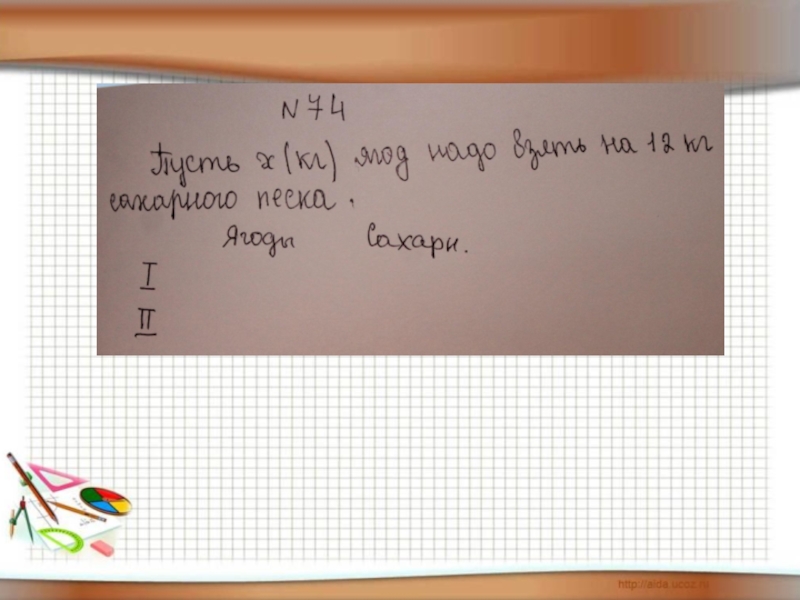 N 74
Пусть x (кг) ягод надо взять на 12 кг
сахарного песка.
Ягоды Сахарн.
I
II
http://aida.ucoz.ru